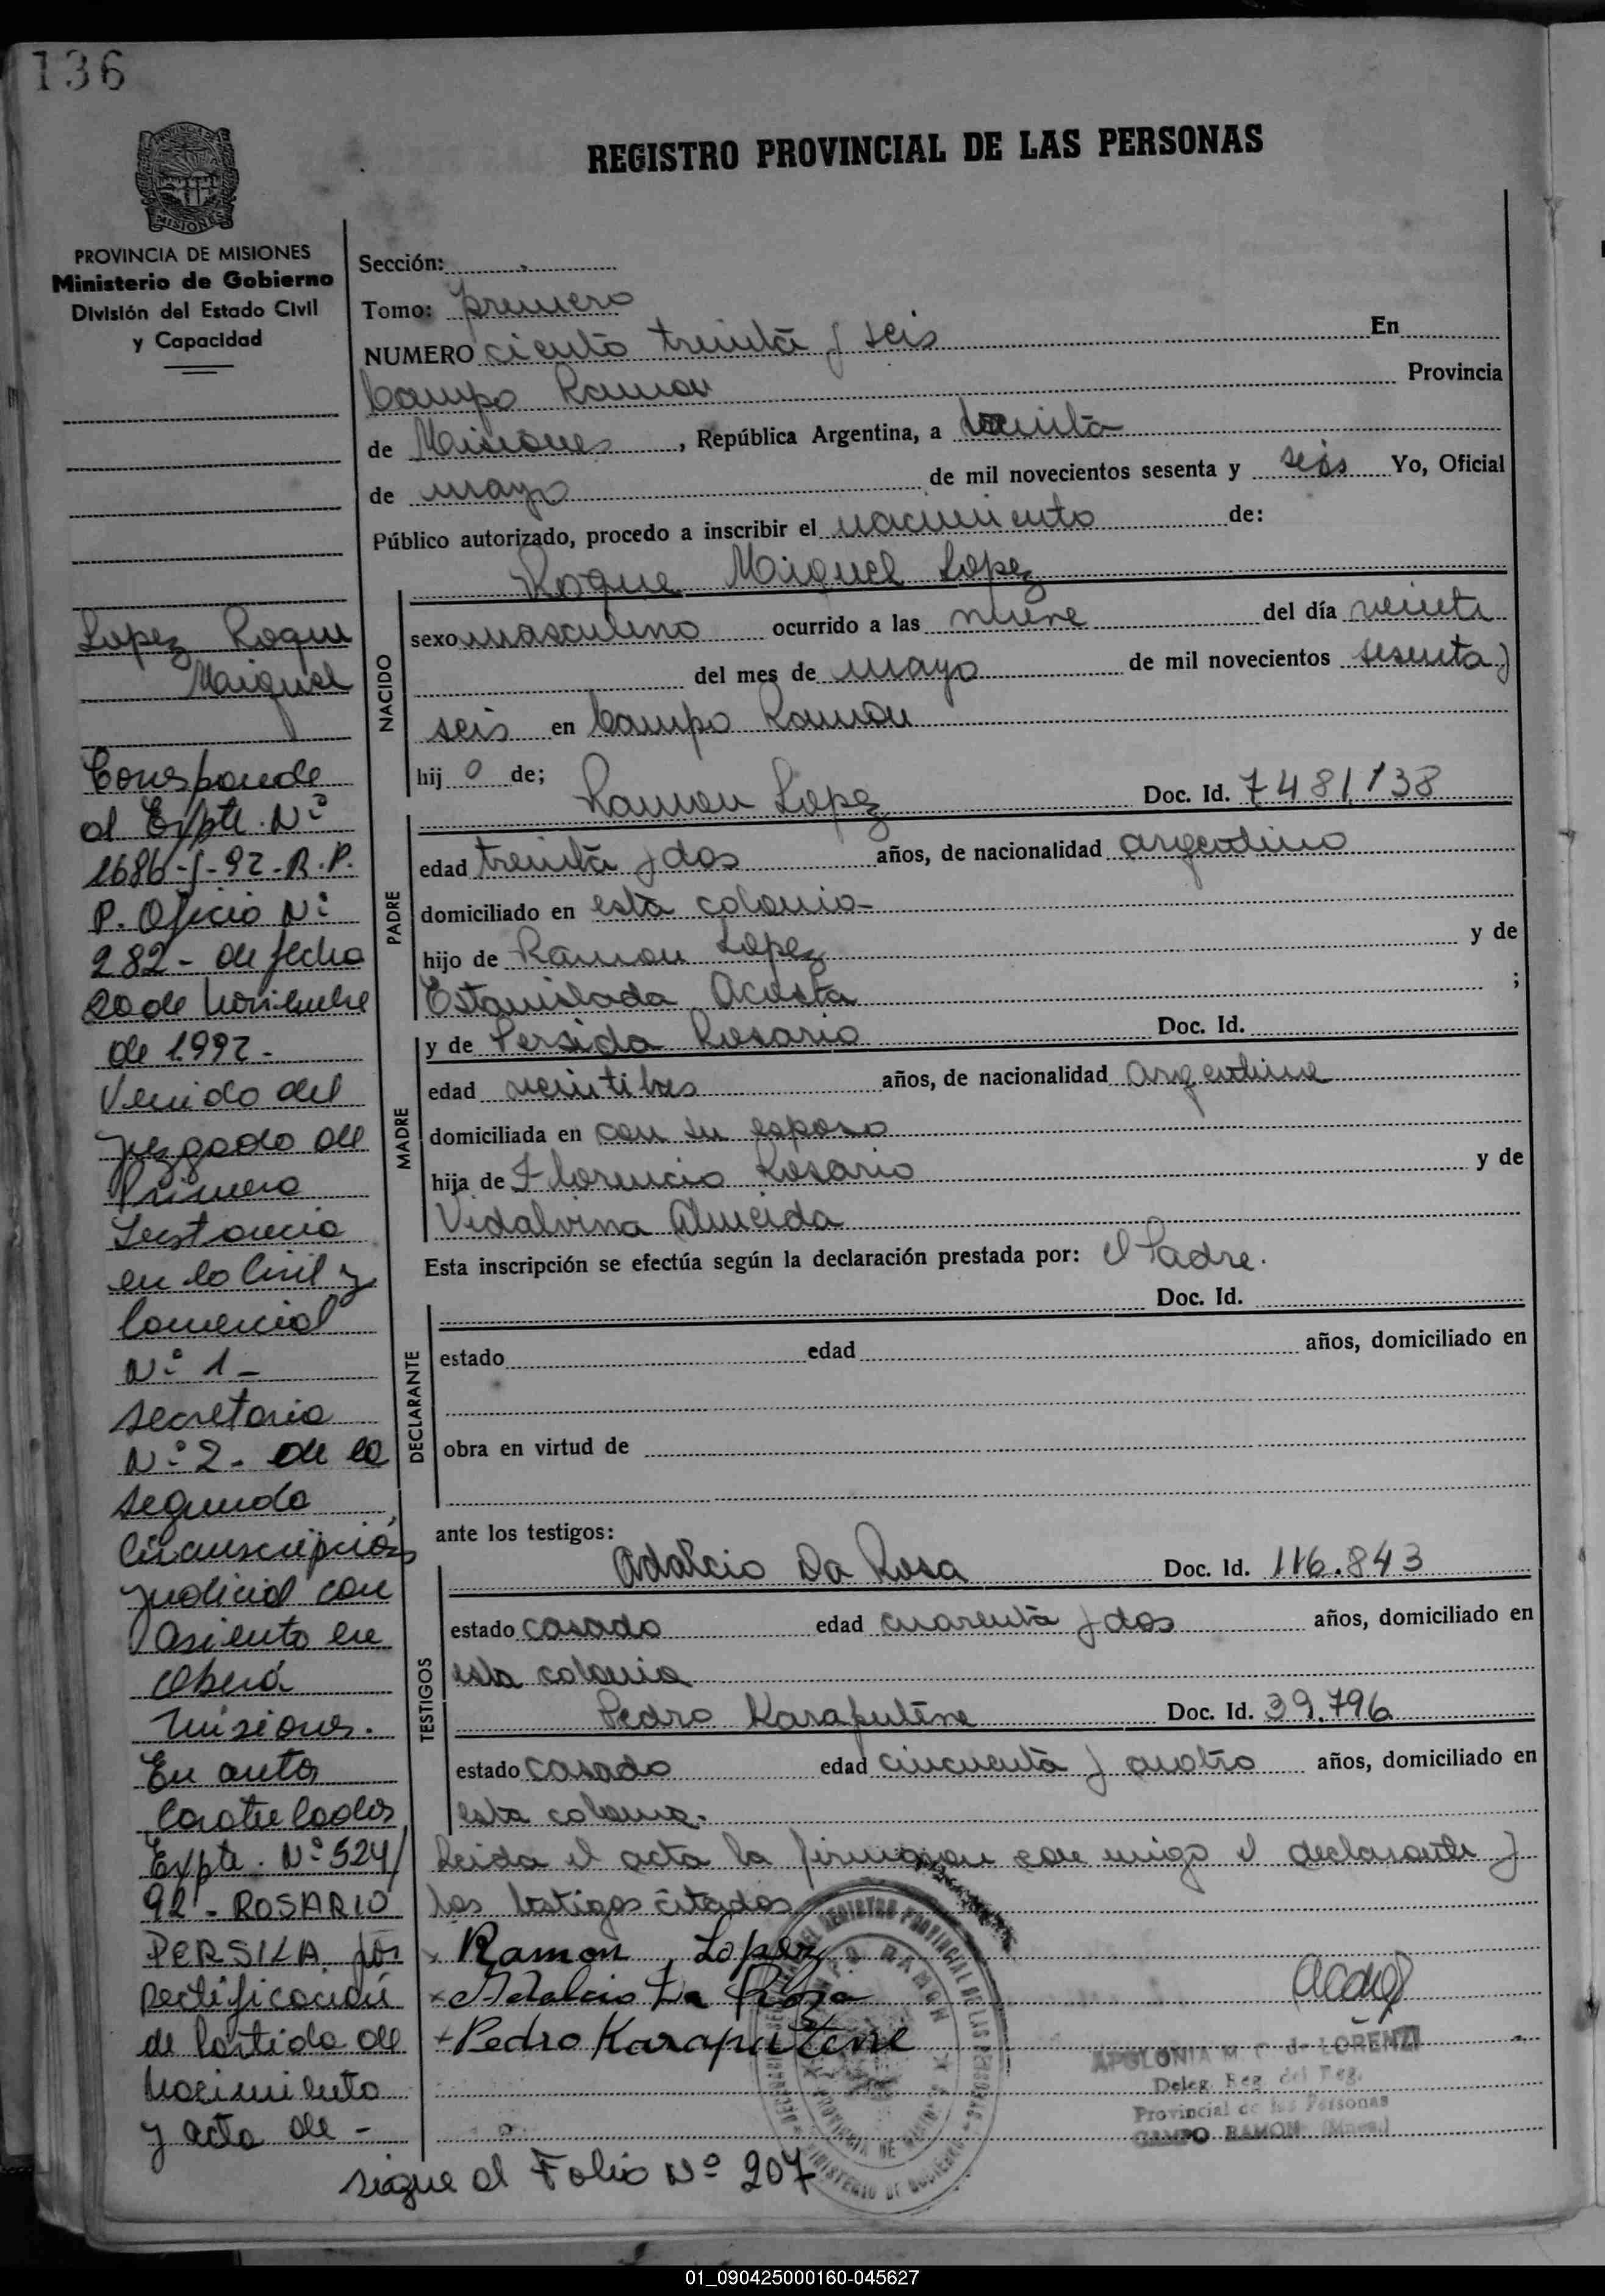 136
REGISTRO PROVINCIAL DE LAS PERSONAS
PROVINCIA DE MISIONES
Ministerio de Gobierno
División del Estado Civil
y Capacidad
Lopez Roque
Maiguel
Corresponde
al Expte. Nº
1686-J-92-R.P.
P. Oficio Nº
282- de fecha
20 de Noviembre
de 1.992-
Venido del
Juzgado de
Primera
Instancia
en lo Civil y
Comercial
Nº 1-
secretaria
Nº 2- de la
segunda
Circunscripción
judicial con
asiento en
Oberá
Misiones.
En autos
Caratulados
Expte. Nº 524/
92 - ROSARIO
PERSILA por
Rectificación
de Partida de
Nacimiento
y acta de -
Sección:
Tomo: primero
NUMERO ciento treinta y seis En
Campo Ramon Provincia
de Misiones, República Argentina, a treinta
de mayo de mil novecientos sesenta y seis Yo, Oficial
Público autorizado, procedo a inscribir el nacimiento de:
Roque Miguel Lopez
NACIDO
sexo masculino ocurrido a las nueve del día veinte
del mes de mayo de mil novecientos sesenta y
seis en Campo Ramon
hij o de;
Ramon Lopez Doc. Id. 7481,138
PADRE
edad treinta y dos años, de nacionalidad argentino
domiciliado en esta colonia-
hijo de Ramon Lopez y de
Estanislada Acosta ;
y de Persida Rosario Doc. Id.
MADRE
edad veintitres años, de nacionalidad argentina
domiciliada en con su esposo
hija de Florencio Rosario y de
Vidalvina Almeida
Esta inscripción se efectúa según la declaración prestada por: el Padre.
Doc. Id.
DECLARANTE
estado edad años, domiciliado en
obra en virtud de
ante los testigos:
Adalcio Da Rosa Doc. Id. 116.843
TESTIGOS
estado casado edad cuarenta y dos años, domiciliado en
esta colonia
Pedro Karaputene Doc. Id. 39.796
estado casado edad cincuenta y cuatro años, domiciliado en
esta colonia.
Leida el acta la firmaron con migo el declarante y
los testigos citados
x Ramon Lopez
x Adalcio Da Rosa
x Pedro Karaputene
APOLONIA M. C. de LORENZI
Deleg. Reg. del Reg.
Provincial de las Personas
CAMPO RAMON (Mnes.)
sigue al Folio Nº 207
01_090425000160-045627